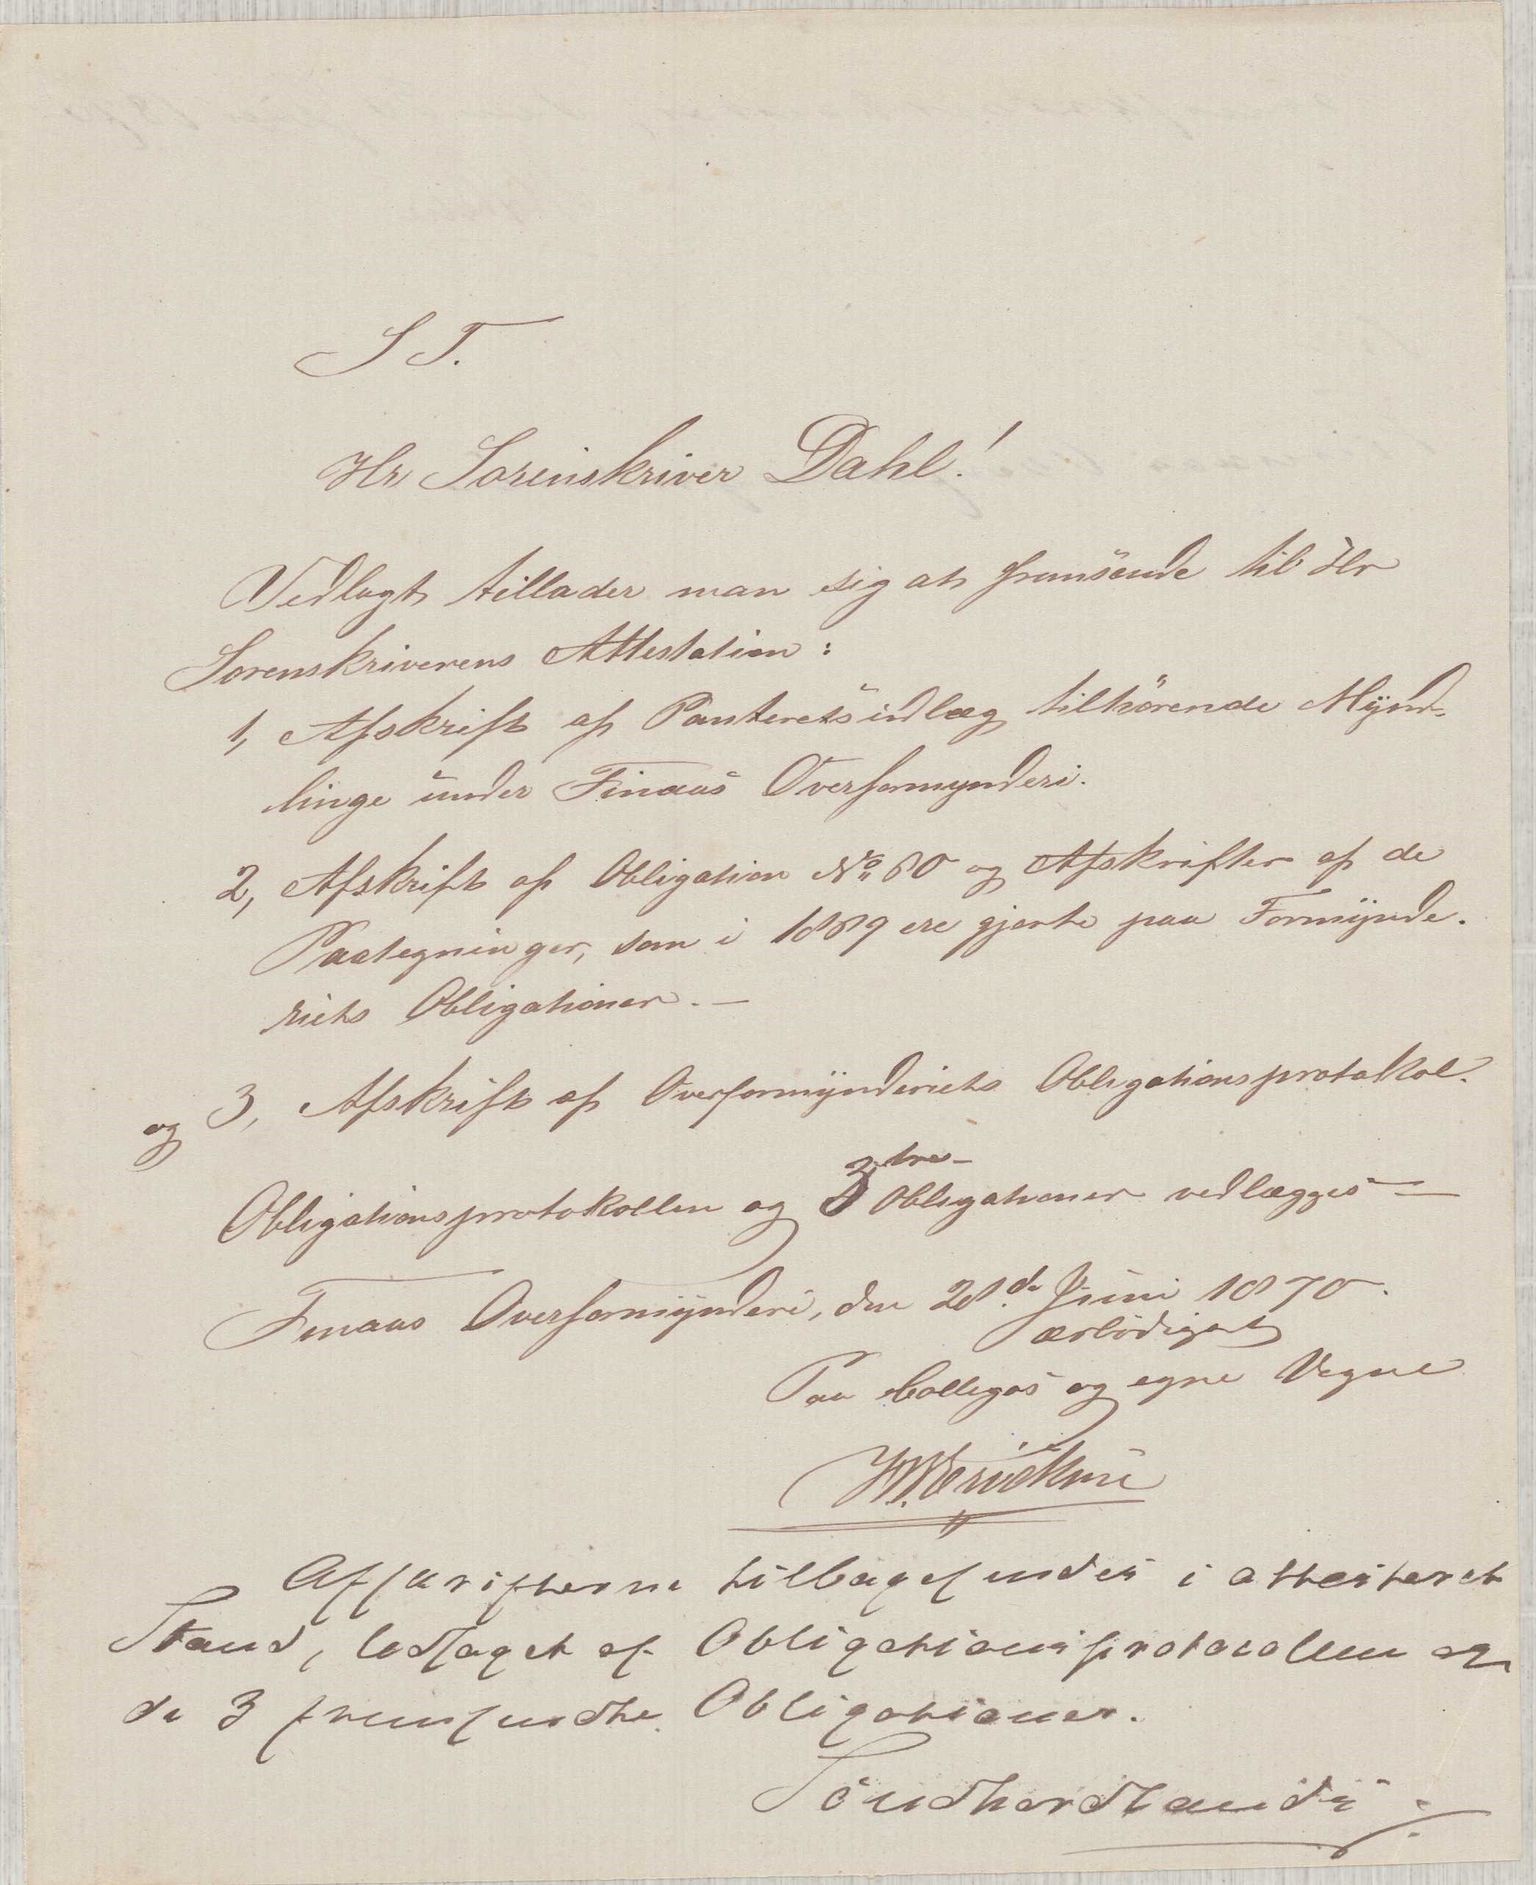 S T.
Hr Sorenskriver Dahl!
Vedlagt tillader man sig at fremsende til Hr
Sorenskriverens Attestation:
1, Afskrift af Panteretsindlæg tilhörende Mynd-
linge under Finaas Overformynderi.
2, Afskrift af Obligation No 60 og Afskrifter af de
Paategninger, som i 1869 ere gjorte paa Formynde-
riets Obligationer. —
og 3, Afskrift af Overformynderiets Obligationsprotokol.
tre —
Obligationsprotokollen og 3 Obligationer vedlægges —
Finaas Overformynderi, den 28de Juni 1870.
ærbödigst
Paa Collegas og egne Vegne
Afskrifterne tilbagesendes i attesteret
Stand, ledsaget af Obligationsprotocollen og
de 3 fremsendte Obligationer.
Söndhordlands